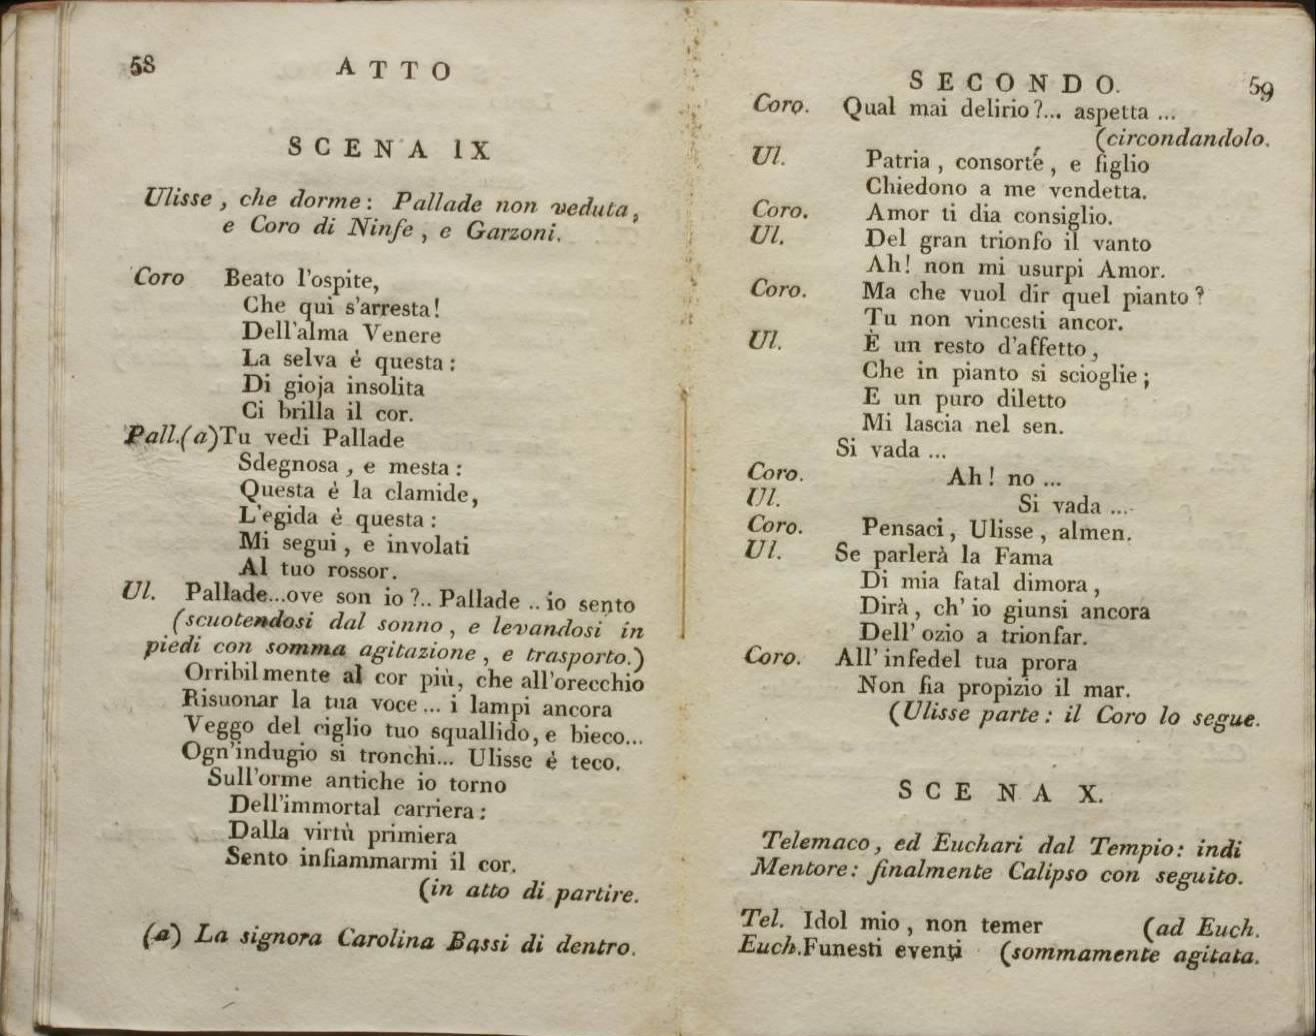 58
ATTO
SCENA IX
Ulisse, che dorme: Pallade non veduta,
e Coro di Ninfe, e Garzoni.
Coro Beato l'ospite,
Che qui s'arresta!
Dell'alma Venere
La selva è questa:
Di gioja insolita
Ci brilla il cor.
Pall.(a)Tu vedi Pallade
Sdegnosa, e mesta:
Questa è la clamide,
L'egida è questa:
Mi segui, e involati
Al tuo rossor.
Ul. Pallade...ove son io?.. Pallade .. io sento
(scuotendosi dal sonno, e levandosi in
piedi con somma agitazione, e trasporto.)
Orribilmente al cor più, che all'orecchio
Risuonar la tua voce ... i lampi ancora
Veggo del ciglio tuo squallido, e bieco...
Ogn'indugio si tronchi... Ulisse è teco.
Sull'orme antiche io torno
Dell'immortal carriera:
Dalla virtù primiera
Sento infiammarmi il cor.
(in atto di partire.
(a) La signora Carolina Bassi di dentro.
SECONDO.
59
Coro. Qual mai delirio?... aspetta ...
(circondandolo.
Ul. Patria, consorte, e figlio
Chiedono a me vendetta.
Coro. Amor ti dia consiglio.
Ul. Del gran trionfo il vanto
Ah! non mi usurpi Amor.
Coro. Ma che vuol dir quel pianto?
Tu non vincesti ancor.
Ul. È un resto d'affetto,
Che in pianto si scioglie;
E un puro diletto
Mi lascia nel sen.
Si vada ...
Coro. Ah! no ...
Ul. Si vada ...
Coro. Pensaci, Ulisse, almen.
Ul. Se parlerà la Fama
Di mia fatal dimora,
Dirà, ch' io giunsi ancora
Dell' ozio a trionfar.
Coro. All' infedel tua prora
Non fia propizio il mar.
(Ulisse parte: il Coro lo segue.
SCENA X.
Telemaco, ed Euchari dal Tempio: indi
Mentore: finalmente Calipso con seguito.
Tel. Idol mio, non temer (ad Euch.
Euch.Funesti eventi (sommamente agitata.